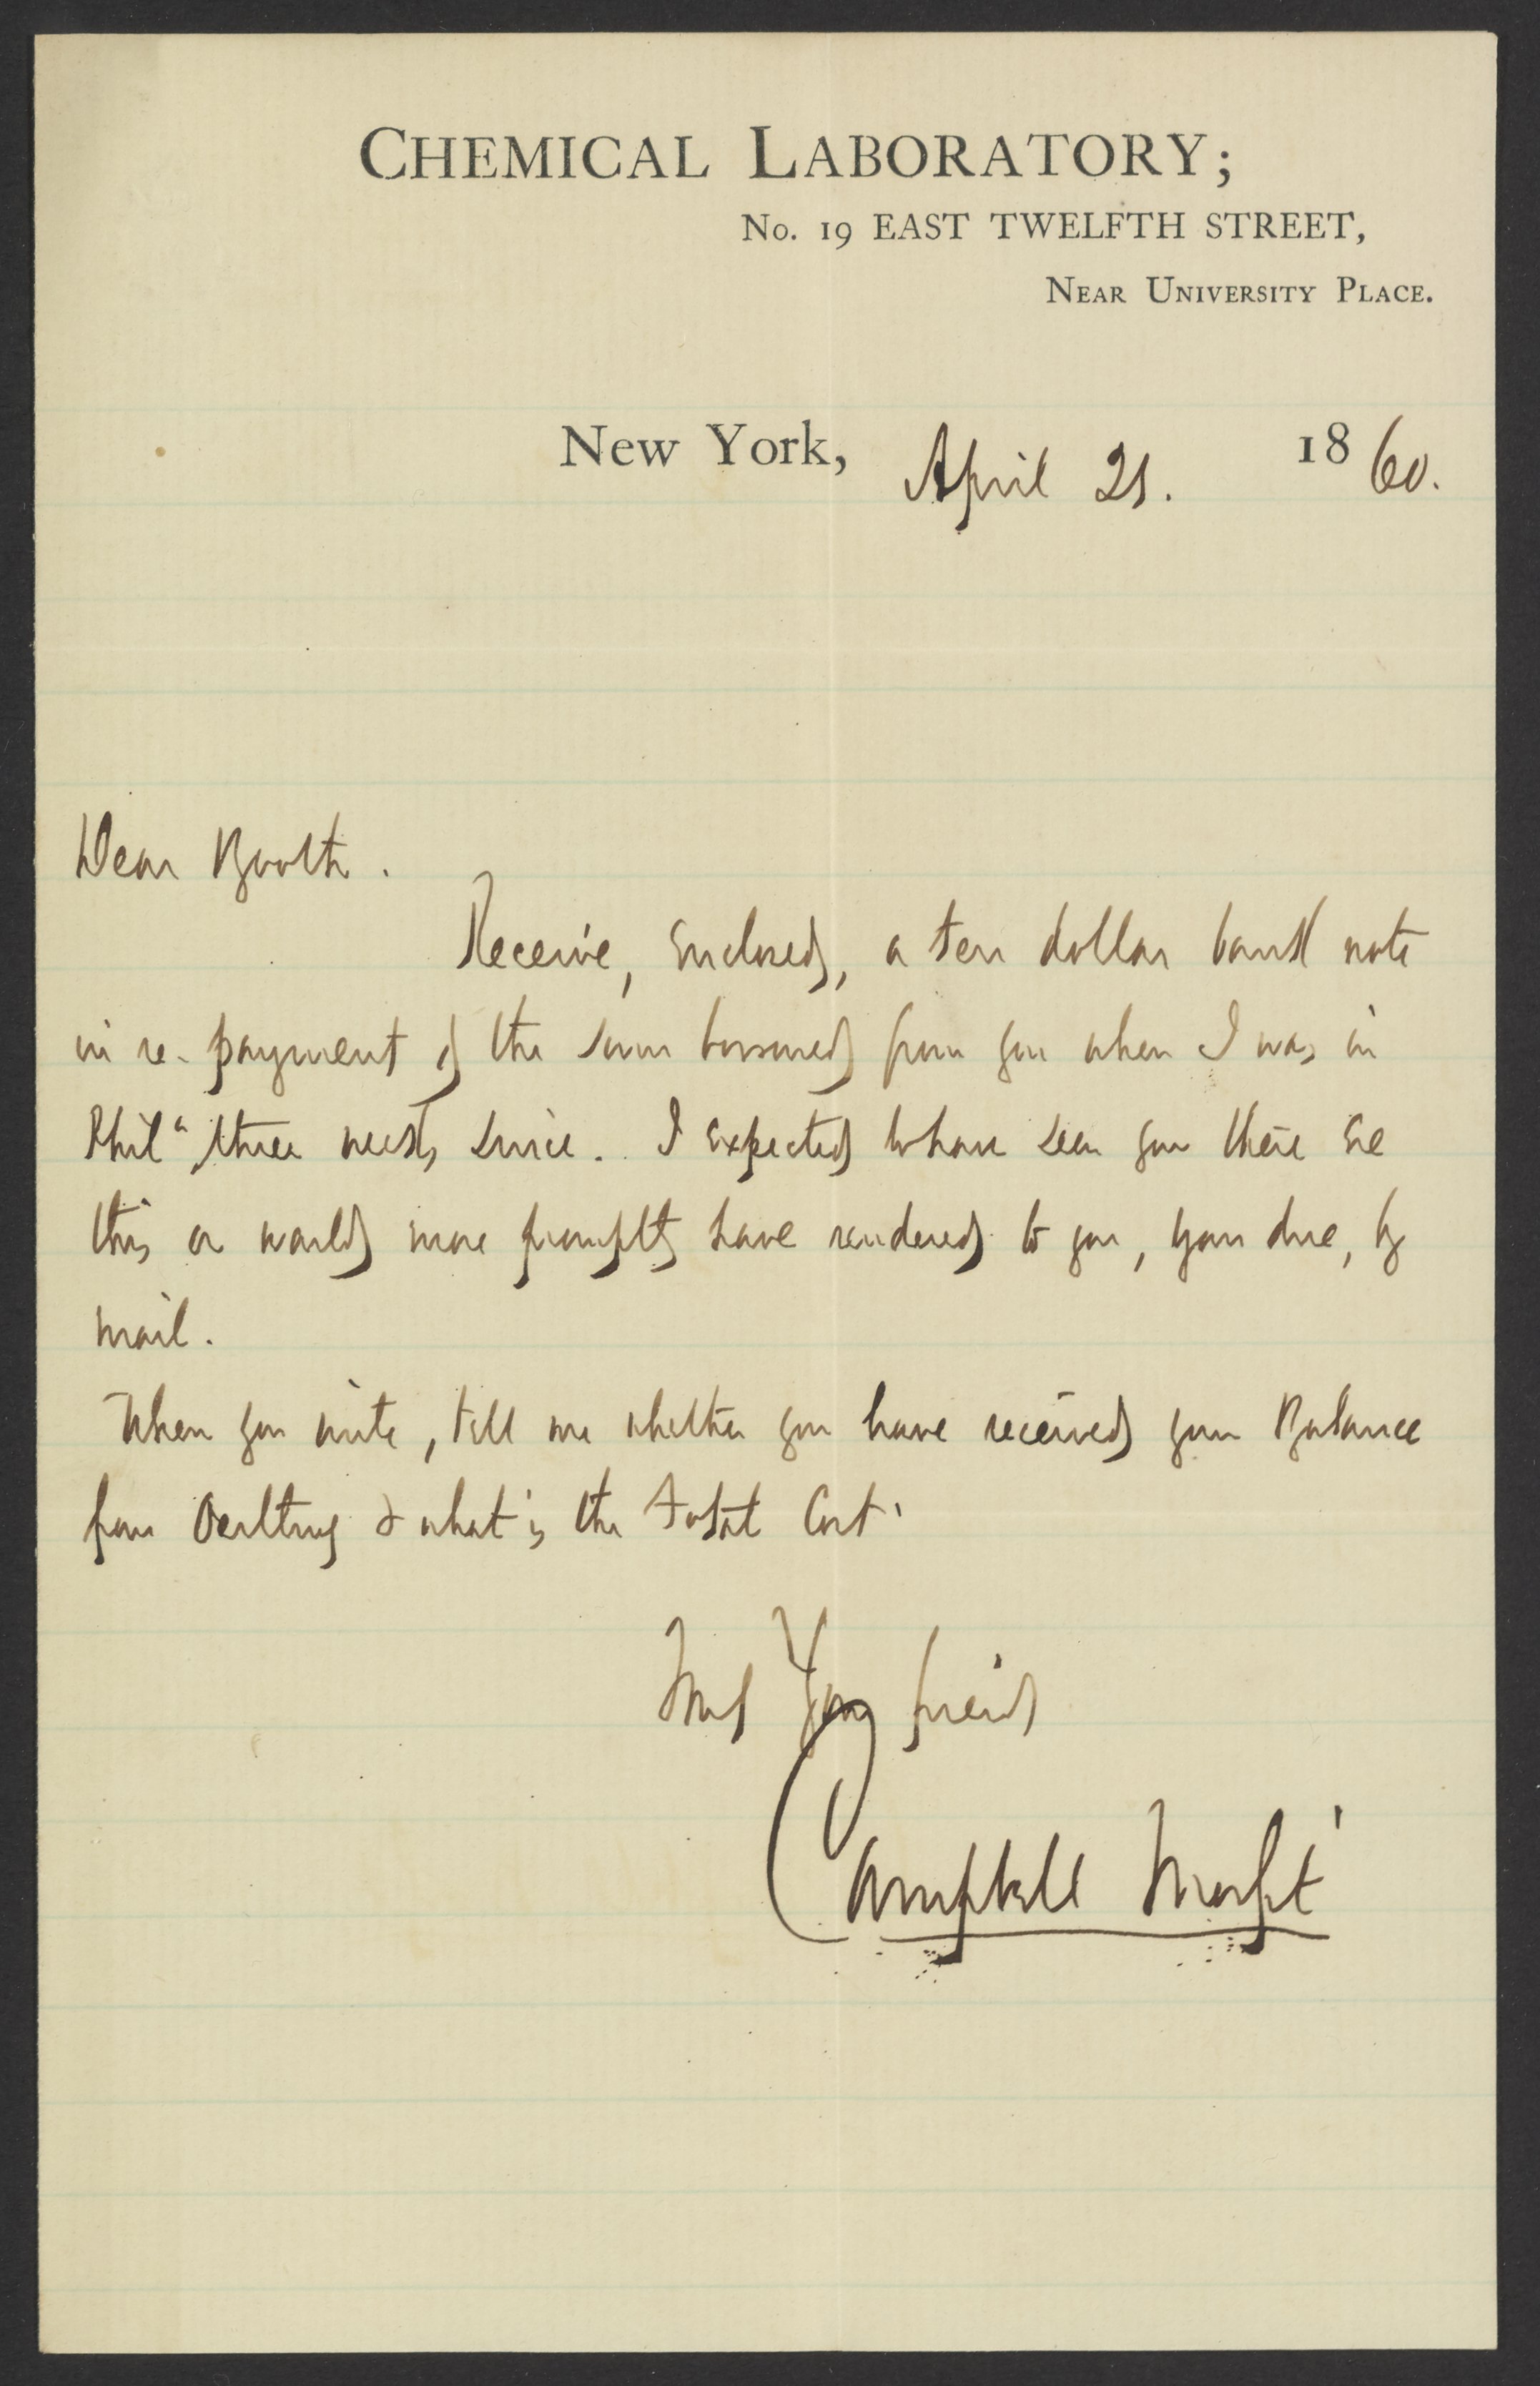 CHEMICAL LABORATORY;
No. 19 EAST TWELFTH STREET,
NEAR UNIVERSITY PLACE.
New York, April 21. 1860.
Dear Booth.
Receive, enclosed, a ten dollar bank note
in re-payment of the sum borrowed from you when I was in
Phila three weeks since. I expected to have seen you there ere
this or would more promptly have rendered to you, your due, by
mail.
When you write, tell me whether you have received your Balance
from Oertling & what is the total Cost.
Your friend
Campbell Morfit